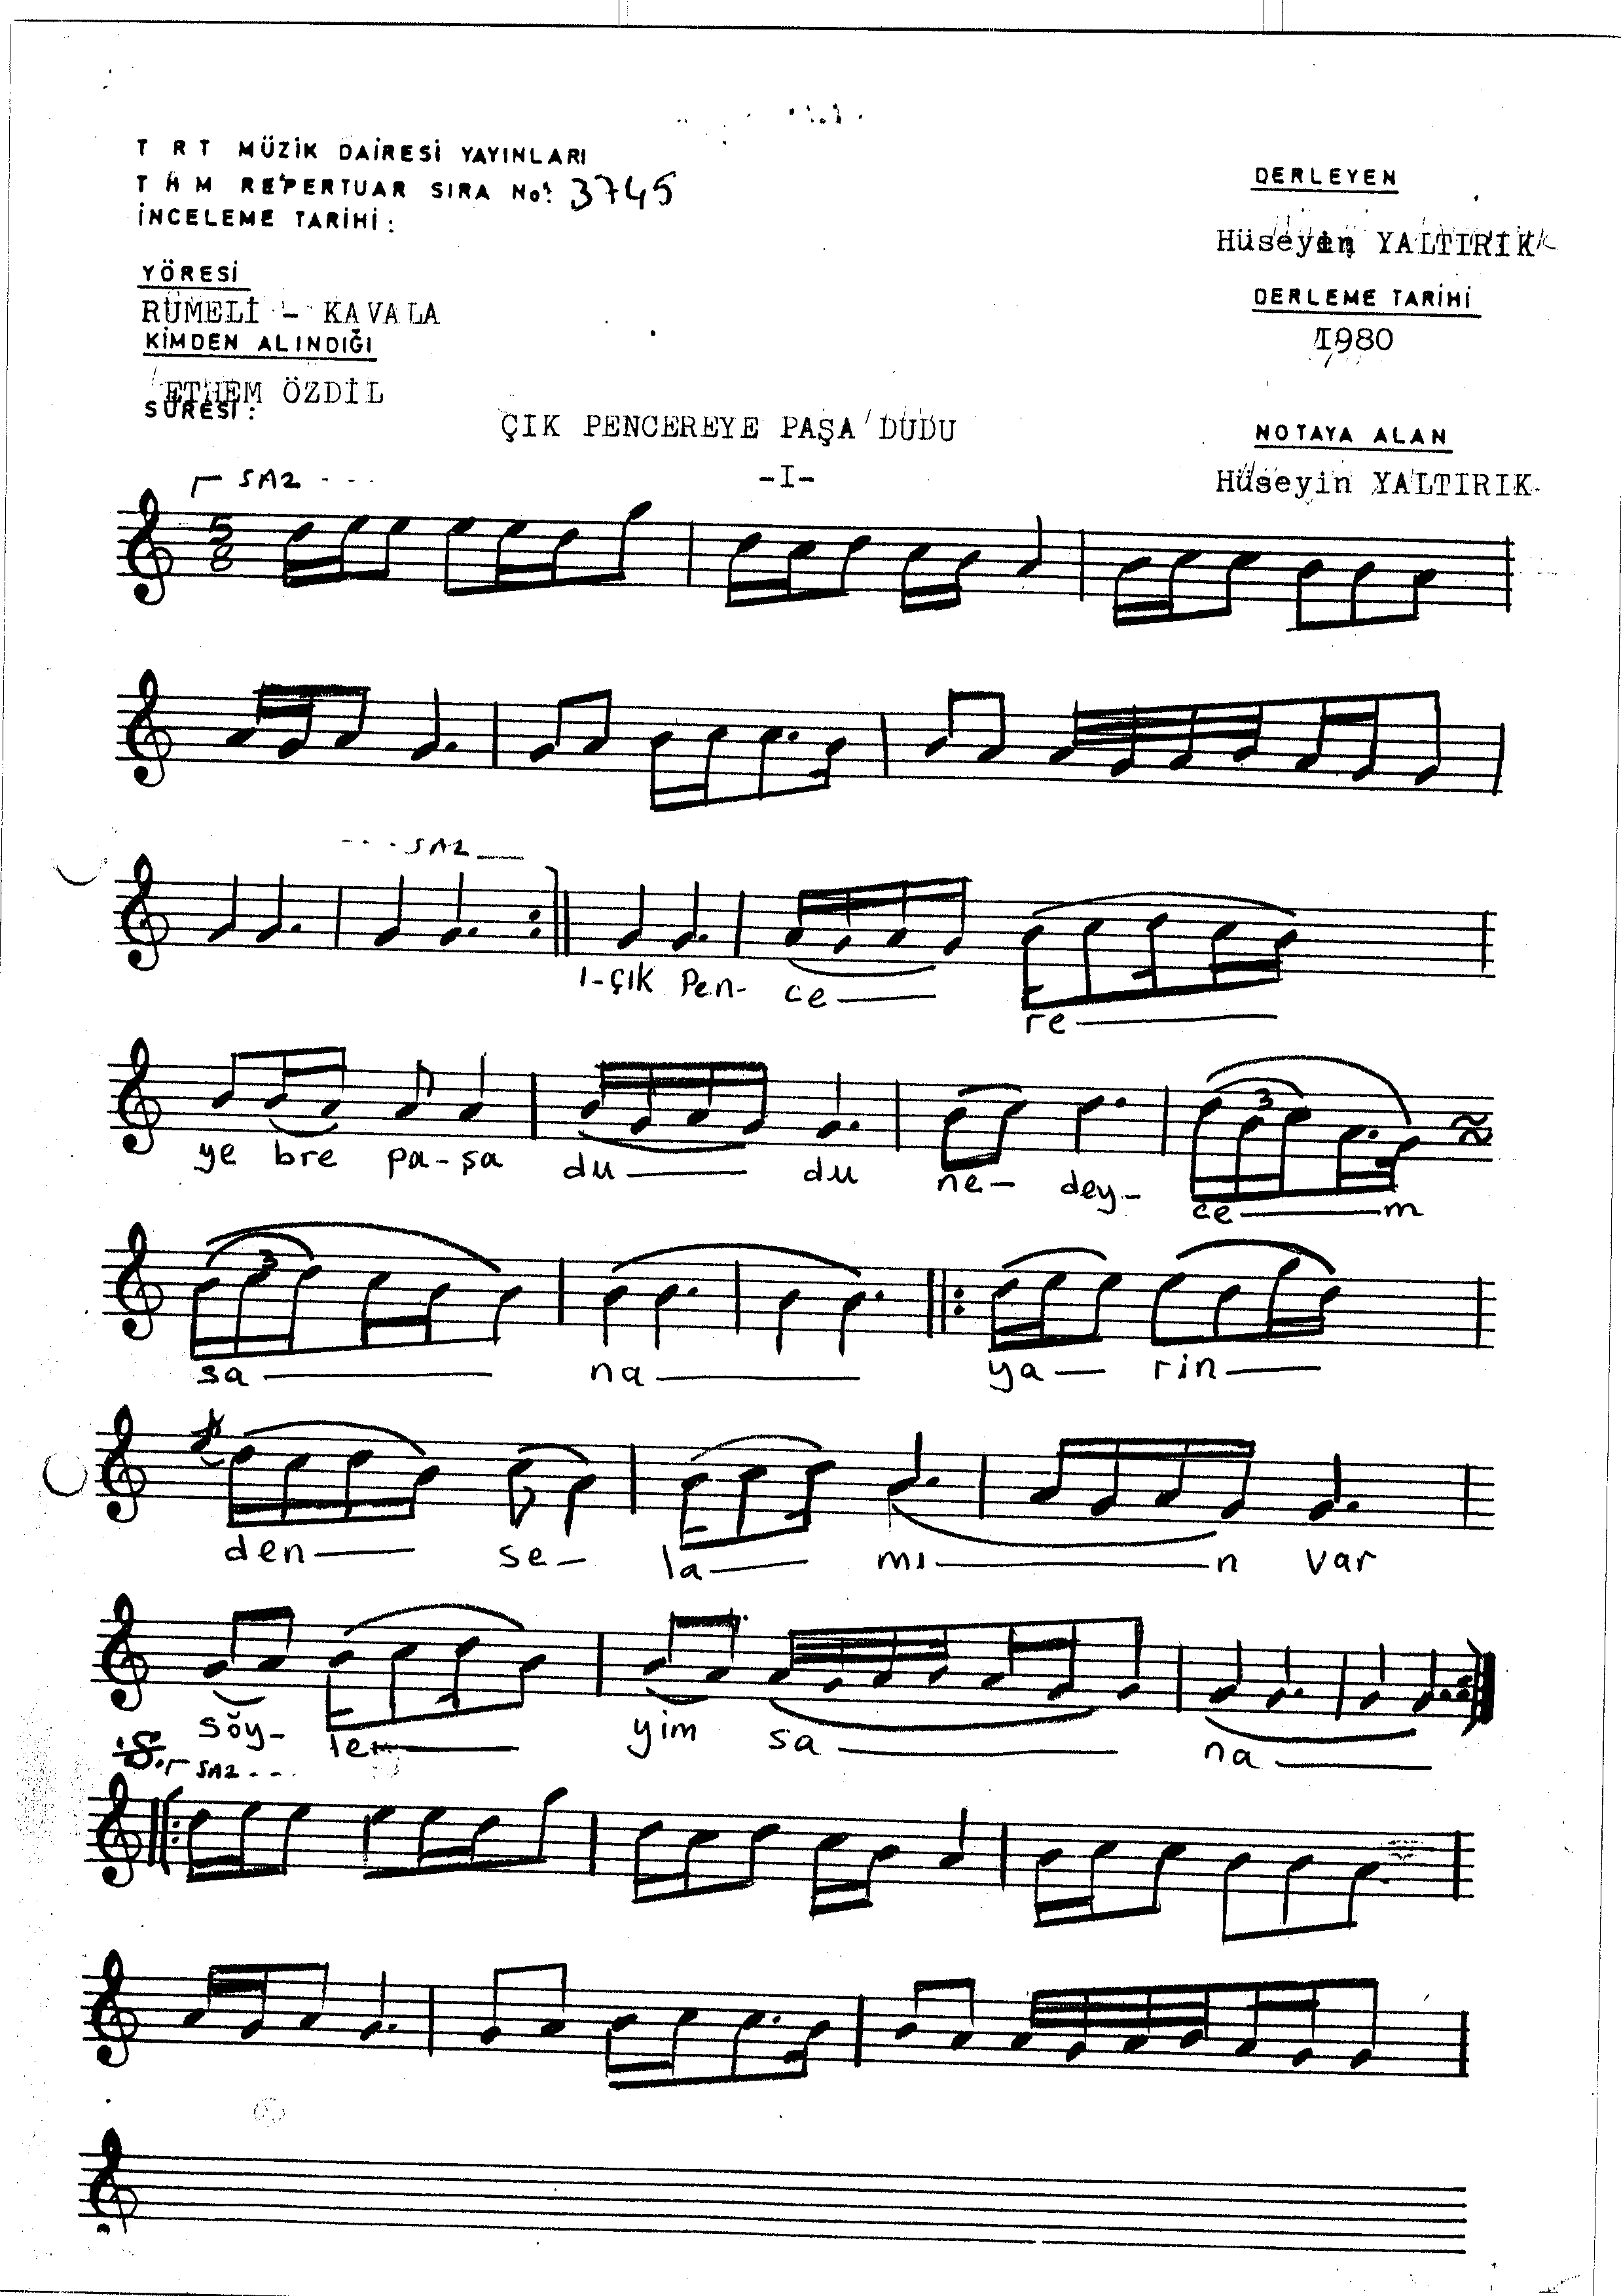 T R T MÜZİK DAİRESİ YAYINLARI
T H M REPERTUAR SIRA No: 3745
İNCELEME TARİHİ :
YÖRESİ
RUMELİ - KAVALA
KİMDEN ALINDIĞI
ETHEM ÖZDİL
SÜRESİ :
DERLEYEN
Hüseyin YALTIRIK
DERLEME TARİHİ
1980
NOTAYA ALAN
Hüseyin YALTIRIK
ÇIK PENCEREYE PAŞA DUDU
-I-
SAZ - - -
5
8
- - - SAZ
1-ÇIK Pen- ce re
ye bre pa-şa du du ne- dey- ce m
3
sa na ya rin
3
den se- la mı n var
söy- le yim sa na
SAZ - - -